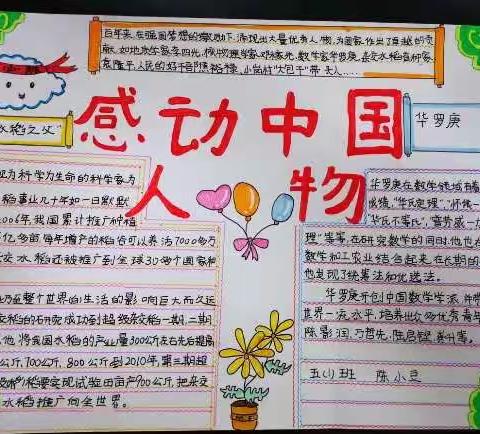 百年来,在强国梦想的激励下,涌现出大量优秀人物,为国家作出了卓越的贡
献,如地质学家李四光,核物理学家邓稼先,数学家华罗庚,杂交水稻育种家
袁隆平,人民的好干部焦裕禄,小岗村"大包干"带头人……
感动中国
人物
水稻之父"
视为科学为生命的科学家为
稻事业几十年如一日默默
2006年我国累计推广种植
亿多亩,每年增产的稻谷可以养活7000多万
交水稻还被推广到全球30多个国家和
乃至整个世界的生活的影响巨大而久远
交稻的研究成功到超级杂交稻一期,二期
他将我国水稻的产量从300公斤左右先后提高
公斤,700公斤,800公斤到2010年,第三期超
稻要实现试验田亩产900公斤,把杂交
水稻推广向全世界。
华罗庚
华罗庚在数学领域有着
成绩,"华氏定理","怀依一
"华氏不等式",
理"等等,在研究数学的同时,他也在
数学和工农业结合起来,在长期的
他发现了统筹法和优选法。
华罗庚开创中国数学学派,并带
世界一流水平,培养出众多优秀青年
陈景润、万哲先、陆启铿、姜
五(1)班 陈小立